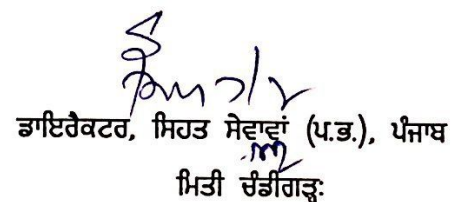 ਡਾਇਰੈਕਟਰ, ਸਿਹਤ ਸੇਵਾਵਾਂ (ਪ.ਭ.), ਪੰਜਾਬ
ਮਿਤੀ ਚੰਡੀਗੜ੍ਹ: